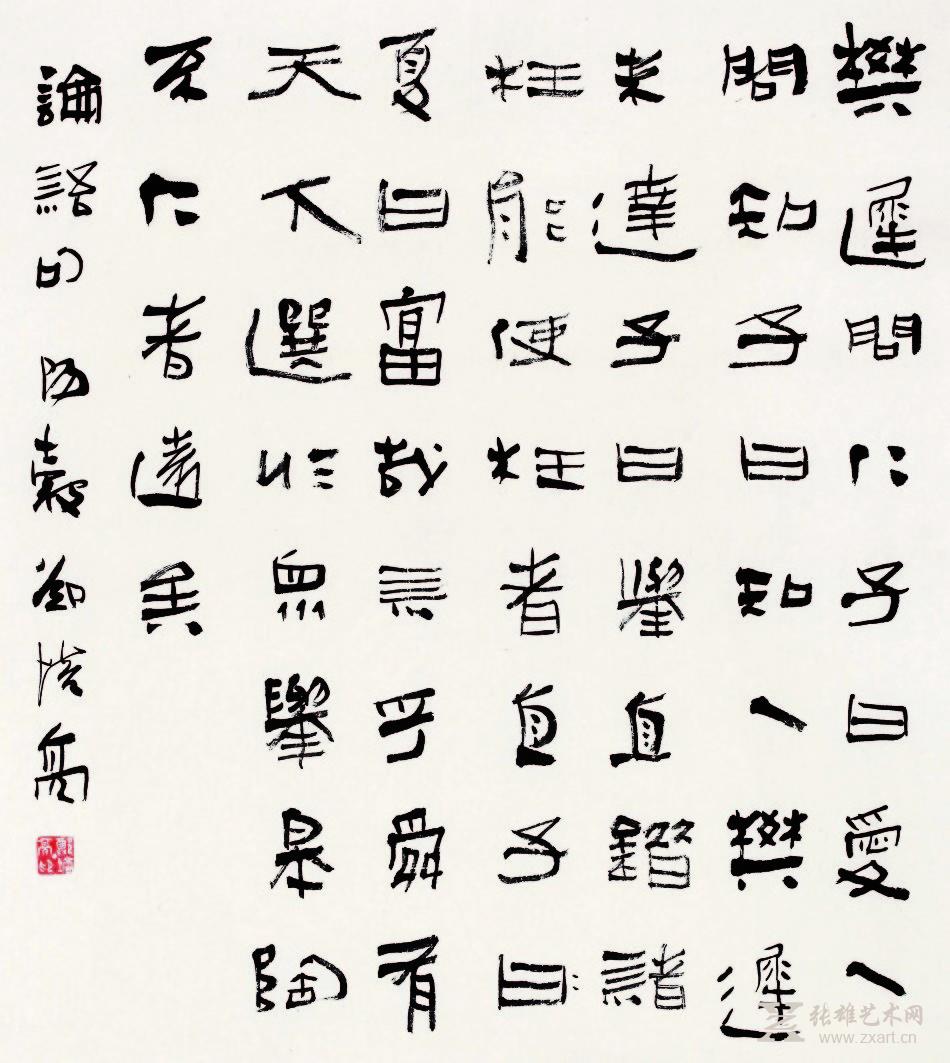 樊遲問仁子曰愛人
問知子曰知人樊遲
未達子曰舉直錯諸
枉能使枉者直子曰
夏曰富哉言乎舜有
天下選於眾舉皋陶
不仁者遠矣
論語句 陽穀鄭培亮
张雄艺术网
www.zxart.cn